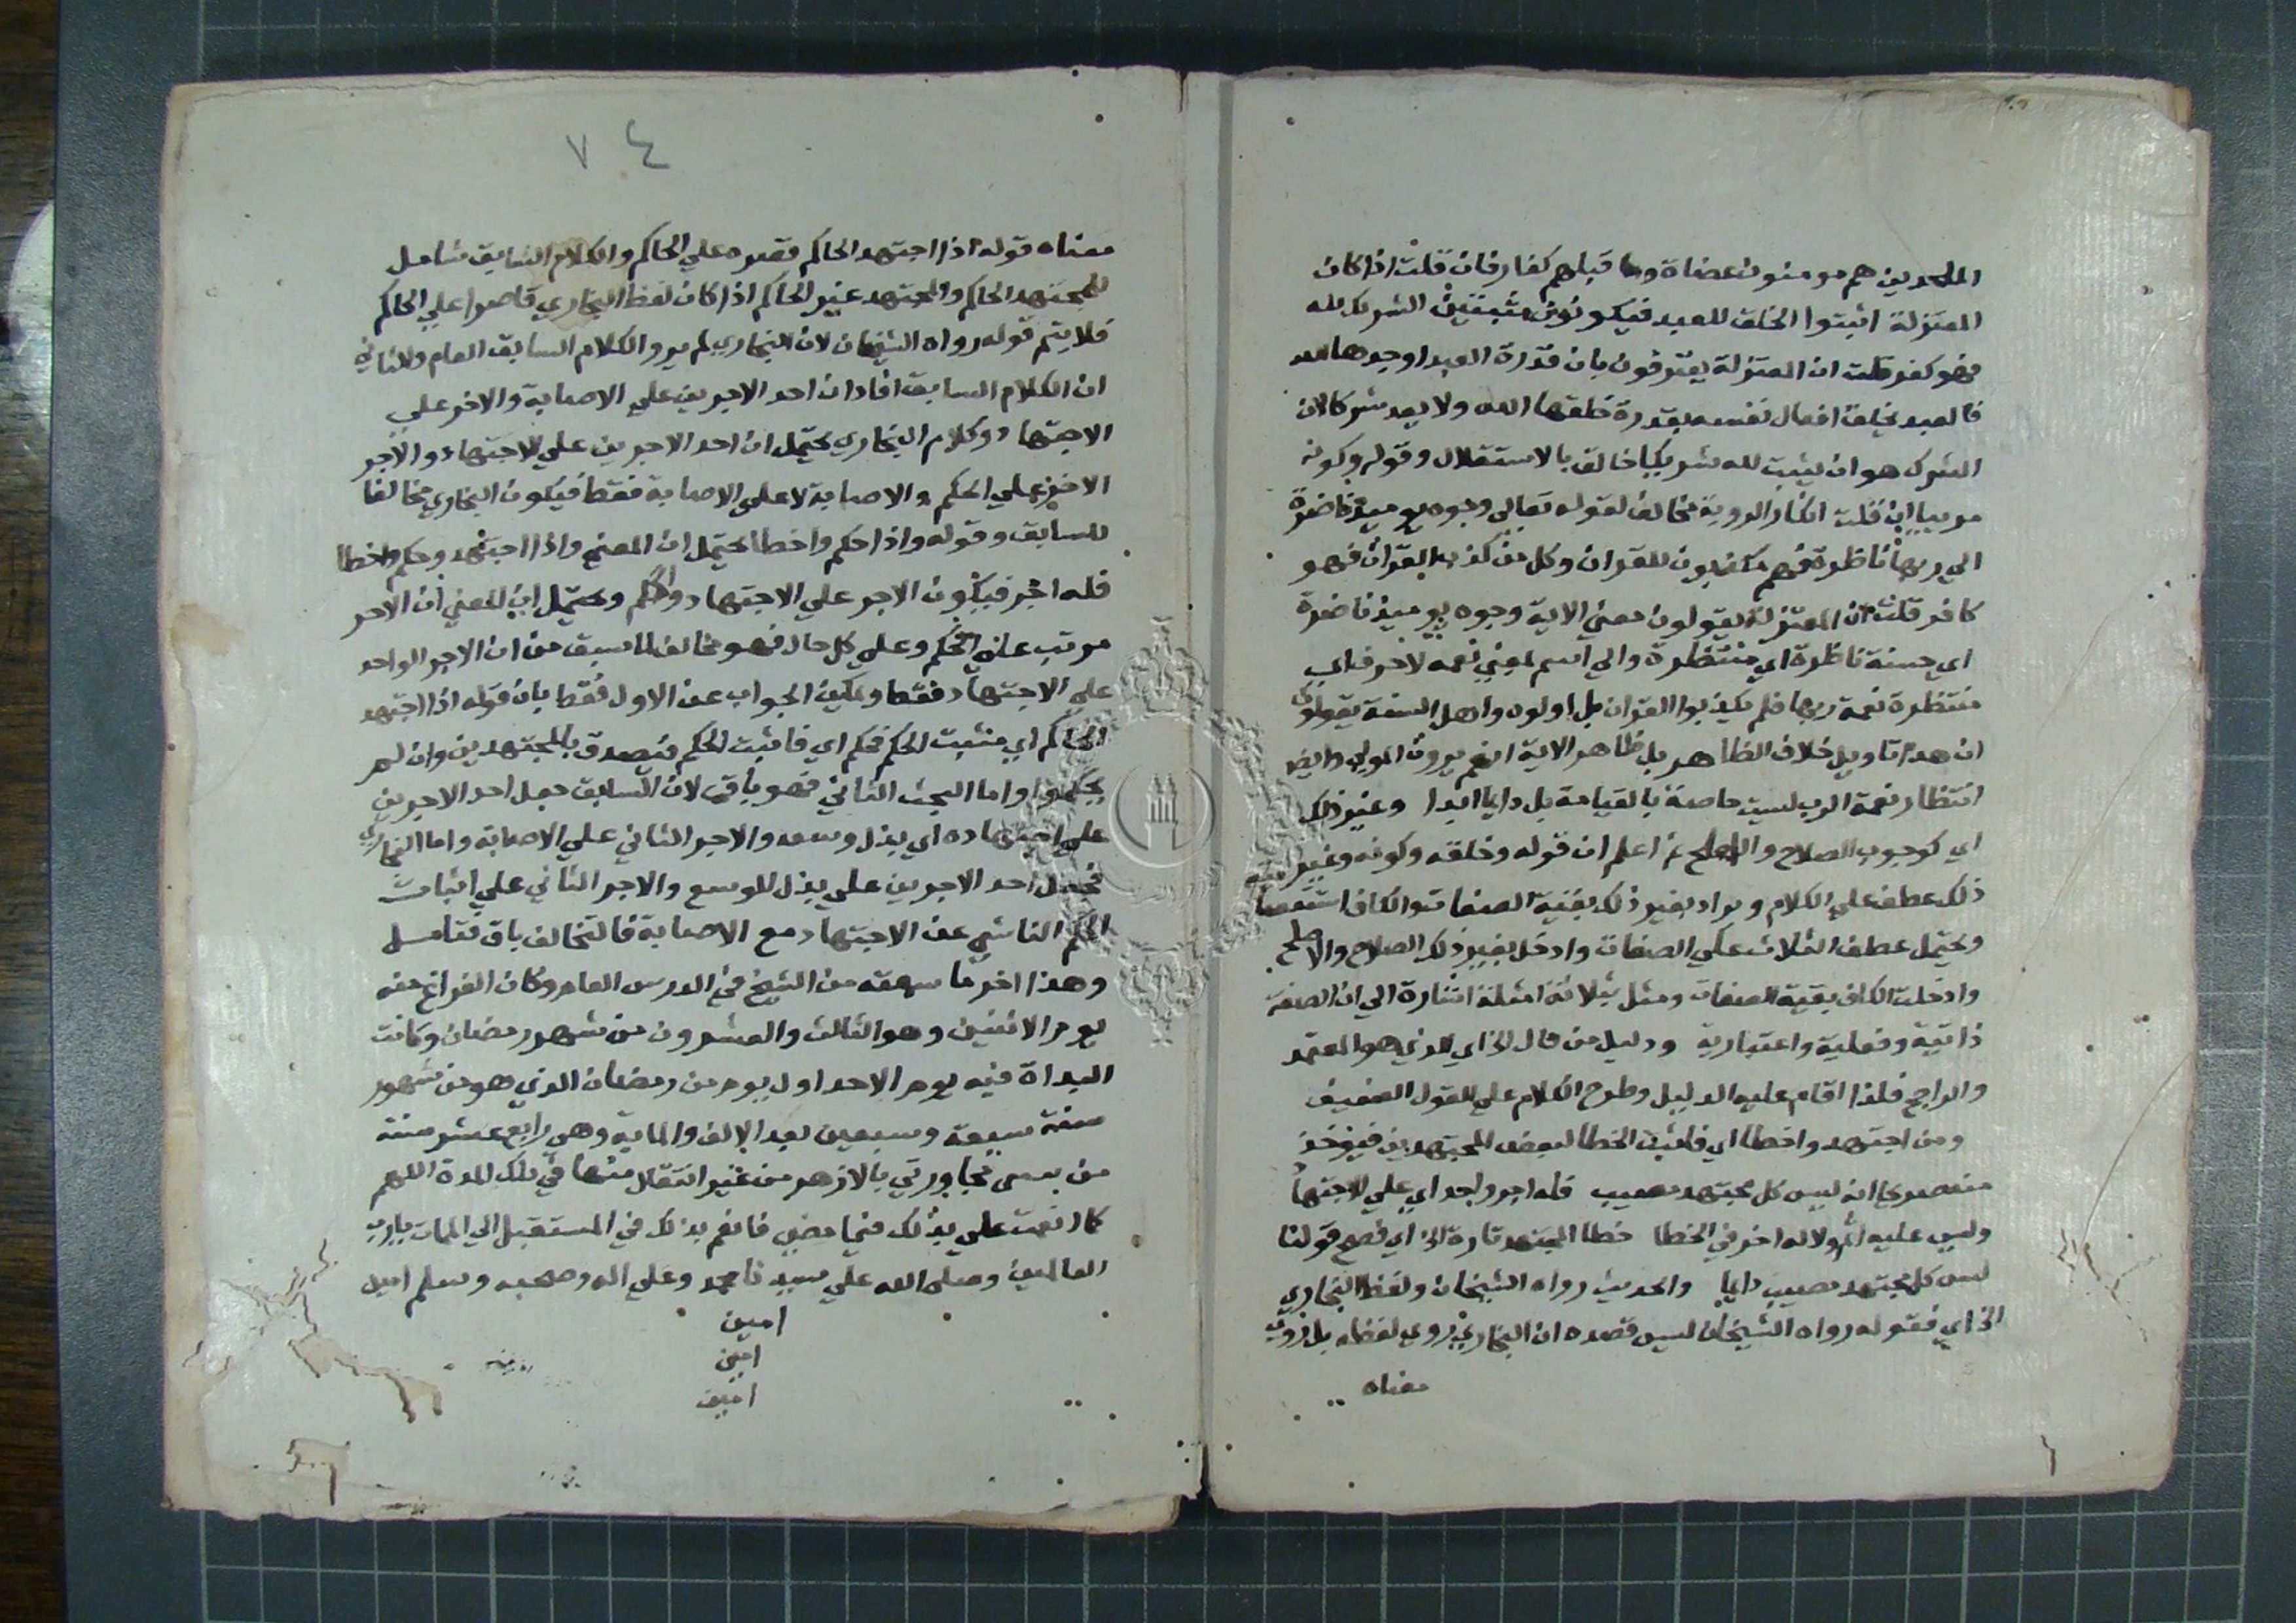 الملحدين هم مومنون عضاة وما قبلهم كفار فان قلت اذا كان
المعتزلة اثبتوا الخلق للعبد فيكونون مثبتين الشريك لله
فهو كفر قلت ان المعتزلة يعترفون بان قدرة العبد اوجدها الله
فالعبد يخلق افعال نفسه بقدرة خلقها الله ولا يعد شركا لان
الشرك هو ان يثبت لله شريكا خالق بالاستقلال وقوله وكونه
مرييا ان قلت انكار الروية مخالف لقوله تعالى وجوه يوميذ ناضرة
الى ربها ناظرة فهم مكذبون للقران وكل من كذب بالقران فهو
كافر قلت ان المعتزلة يقولون معني الاية وجوه يوميذ ناضرة
اي حسنة ناظرة اي منتظرة والى اسم بمعني نعمه لا حرف اي
منتظرة نعمة ربها فلم يكذبوا القران بل اولوه واهل السنة يقولون
ان هذا تاويل خلاف الظاهر بل ظاهر الاية انهم يرون المولى وايضا
انتظار نعمة الرب ليست خاصة بالقيامة بل دايما ابدا وغير ذلك
اي كوجوب الصلاح والاصلح ثم اعلم ان قوله وخلقه وكونه وغير
ذلك عطف على الكلام ويراد بغير ذلك بقية الصفات والكاف استقصا
ويحتمل عطف الثلاث على الصفات وادخل بغير ذلك الصلاح والاصلح
وادخلت الكاف بقية الصفات ومثل بثلاثة امثلة اشارة الى ان الصفة
ذاتية وفعلية واعتبارية ودليل من قال الخ اي الذي هو المعتمد
والراجح فلذا اقام عليه الدليل وطرح الكلام على القول الضعيف
ومن اجتهد واخطا اي فاثبت الخطا لبعض المجتهدين فيوخذ
منه صريحا انه ليس كل مجتهد مصيب فله اجر واحد اي على الاجتهاد
وليس عليه اثم ولا له اخر في الخطا خطا المجتهد تارة الخ اي فصح قولنا
ليس كل مجتهد مصيب دايما والحديث رواه الشيخان ولفظ البخاري
الخ اي فقوله رواه الشيخان ليس قصده ان البخاري روي لفظه بل روي
معناه
٧٤
معناه قوله اذا اجتهد الحاكم قصره على الحاكم والكلام السابق شامل
للمجتهد الحاكم والمجتهد غير الحاكم اذا كان لفظ البخاري قاصرا على الحاكم
فلا يتم قوله رواه الشيخان لان البخاري لم يرو الكلام السابق العام والثاني
ان الكلام السابق افاد ان احد الاجرين على الاصابة والاخر على
الاجتهاد وكلام البخاري يحتمل ان احد الاجرين على الاجتهاد والاجر
الاخر على الحكم والاصابة لا على الاصابة فقط فيكون البخاري مخالفا
للسابق وقوله واذا حكم واخطا يحتمل ان المعنى واذا اجتهد وحكم واخطا
فله اجر فيكون الاجر على الاجتهاد والحكم ويحتمل ان المعني ان الاجر
مرتب على الحكم وعلى كل حال فهو مخالف لما سبق من ان الاجر الواحد
على الاجتهاد فقط ويمكن الجواب عن الاول فقط بان قوله اذا اجتهد
الحاكم اي مثبت الحكم فحكم اي فاثبت الحكم فيصدق بالمجتهدين وان لم
يحكموا واما البحث الثاني فهو باق لان السابق جعل احد الاجرين
على اجتهاده اي بذل وسعه والاجر الثاني على الاصابة واما البخاري
فجعل احد الاجرين على بذل الوسع والاجر الثاني على اثبات
الحكم الناشي عن الاجتهاد مع الاصابة فالتخالف باق فتامل
وهذا اخر ما سمعته من الشيخ في الدرس العام وكان الفراغ منه
يوم الاثنين وهو الثالث والعشرون من شهر رمضان وكانت
البداة فيه يوم الاحد اول يوم من رمضان الذي هو من شهور
سنة سبعة وسبعين بعد الالف والماية وهى رابع عشر سنة
من مجاورتي بالازهر من غير انتقال منها في تلك المدة اللهم
كما انعمت على بذلك فيما مضى فانعم بذلك في المستقبل الى الممات يارب
العالمين وصلى الله على سيدنا محمد وعلى اله وصحبه وسلم امين
امين
امين
امين